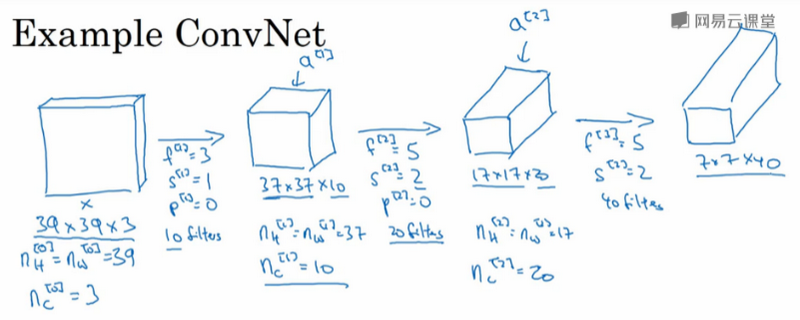 Example ConvNet
网易云课堂
x
39×39×3
n_H^[0] = n_W^[0] = 39
n_C^[0] = 3
f^[1] = 3
s^[1] = 1
p^[1] = 0
10 filters
a^[1]
37×37×10
n_H^[1] = n_W^[1] = 37
n_C^[1] = 10
f^[2] = 5
s^[2] = 2
p^[2] = 0
20 filters
a^[2]
17×17×20
n_H^[2] = n_W^[2] = 17
n_C^[2] = 20
f^[3] = 5
s^[3] = 2
40 filters
7×7×40